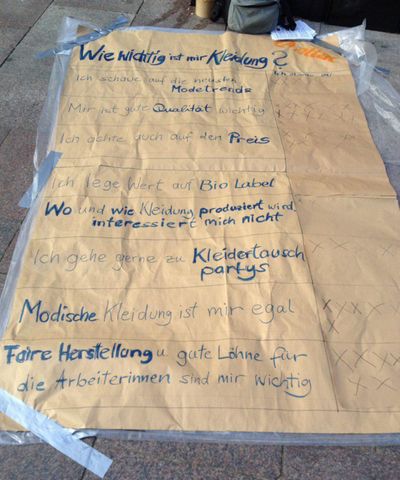 Wie wichtig ist mir Kleidung?
Ich schaue auf die neusten
Modetrends
Mir ist gute Qualität wichtig
Ich achte auch auf den Preis
Ich lege Wert auf Bio Label
Wo und wie Kleidung produziert wird,
interessiert mich nicht
Ich gehe gerne zu Kleidertausch
partys
Modische Kleidung ist mir egal
Faire Herstellung u. gute Löhne für
die Arbeiterinnen sind mir wichtig